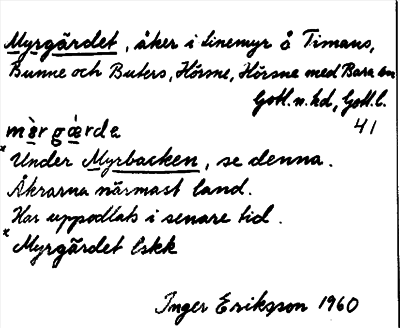 Myrgärdet, åker i Linemyr å Timans,
Bunne och Buters, Hörsne, Hörsne med Bara sn
Gotl. n. hd, Gotl. l.
41
mè̬rgæ̀rdɐ
× Under Myrbacken, se denna.
Åkrarna närmast land.
Har uppodlats i senare tid.
× Myrgärdet Lskk
Inger Eriksson 1960